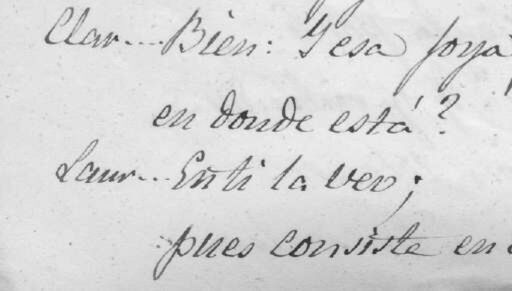 Clar... Bien: Y esa joya
en donde está?
Laur... En ti la veo;
pues consiste en